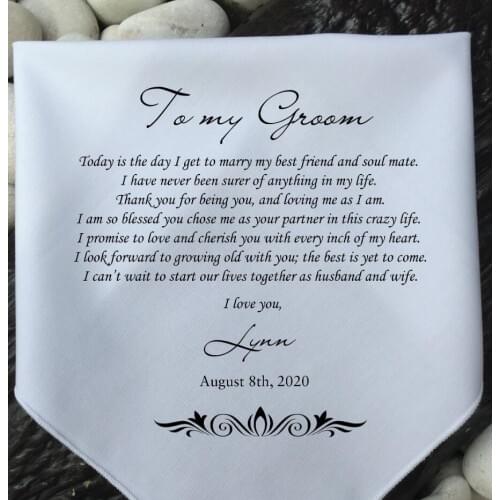 To my Groom
Today is the day I get to marry my best friend and soul mate.
I have never been surer of anything in my life.
Thank you for being you, and loving me as I am.
I am so blessed you chose me as your partner in this crazy life.
I promise to love and cherish you with every inch of my heart.
I look forward to growing old with you; the best is yet to come.
I can't wait to start our lives together as husband and wife.
I love you,
Lynn
August 8th, 2020